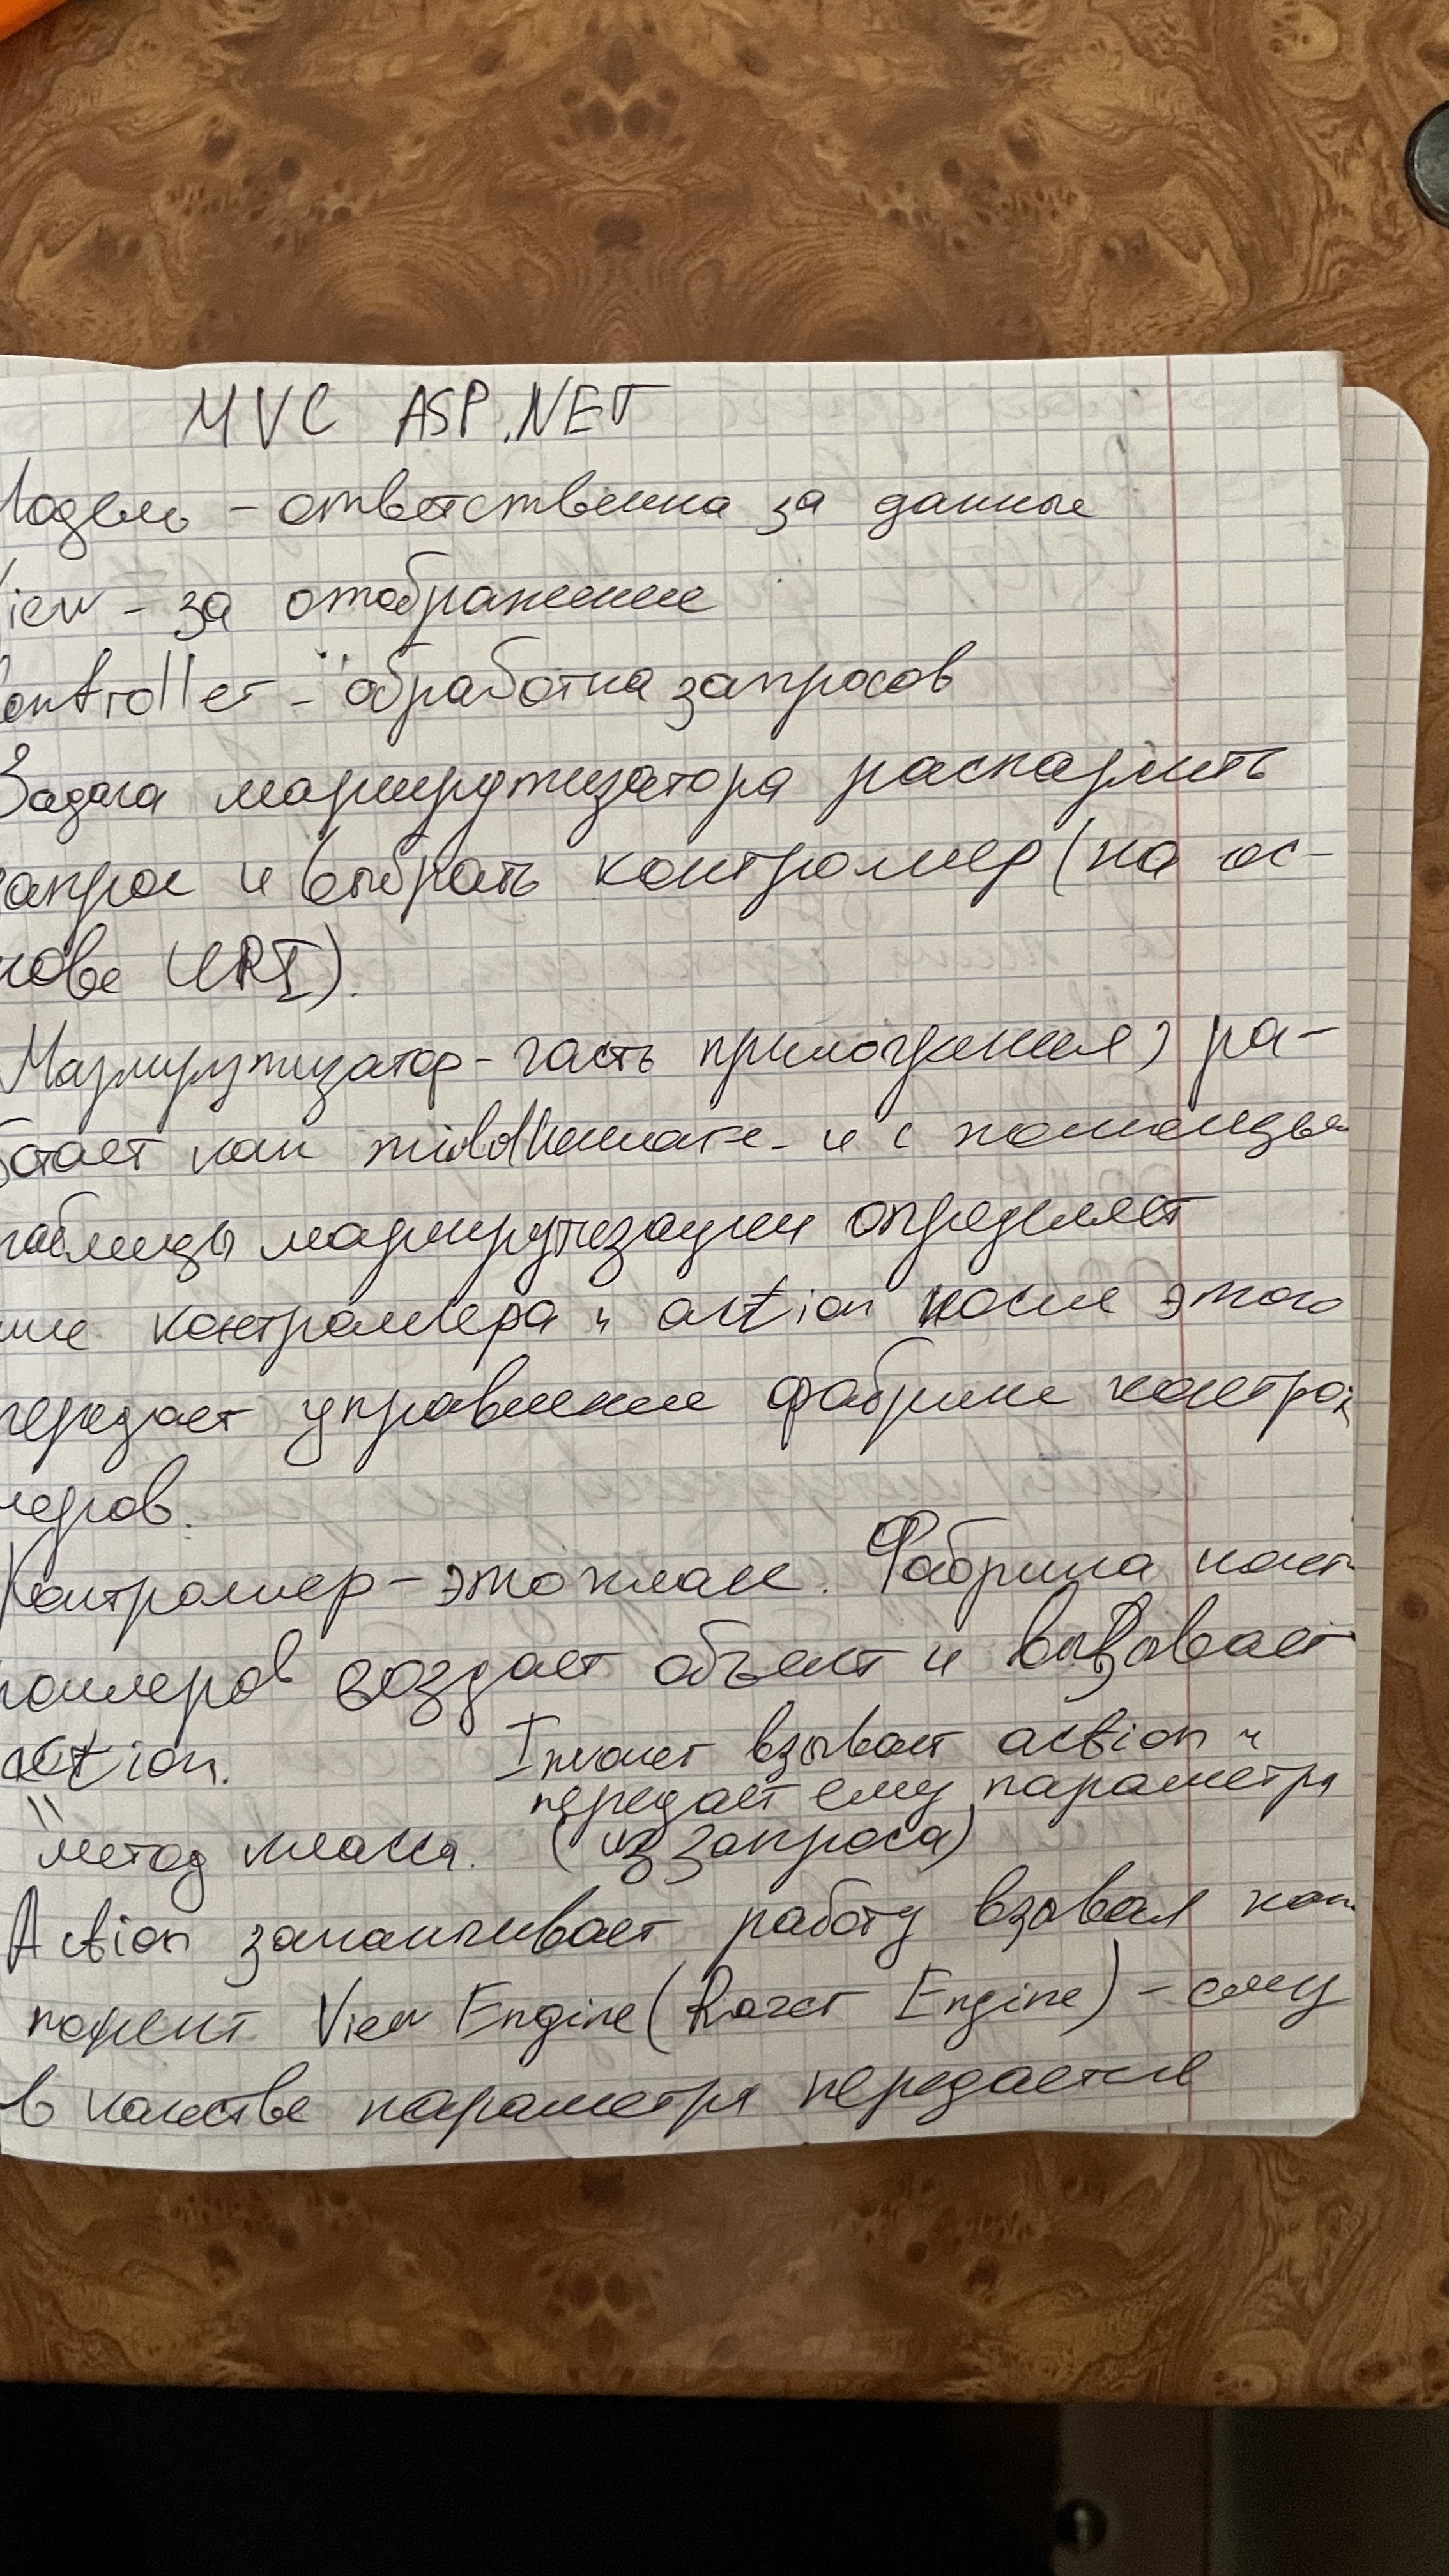 MVC ASP.NET
Модель - ответственна за данные
View - за отображение
Controller - обработка запросов
Задача маршрутизатора распарсить
запрос и выбрать контроллер (на ос-
нове URI).
Маршрутизатор - часть приложения, ра-
ботает как middleware и с помощью
таблицы маршрутизации определяет
имя контроллера и action после этого
передает управление фабрике контрол
леров.
Контроллер - это класс. Фабрика конт-
роллеров создает объект и вызывает
action.
Invoker взывает action и
передает ему параметры
(из запроса)
метод класса.
Action заканчивает работу взывая ком
понент View Engine (Razor Engine) - ему
в качестве параметра передается